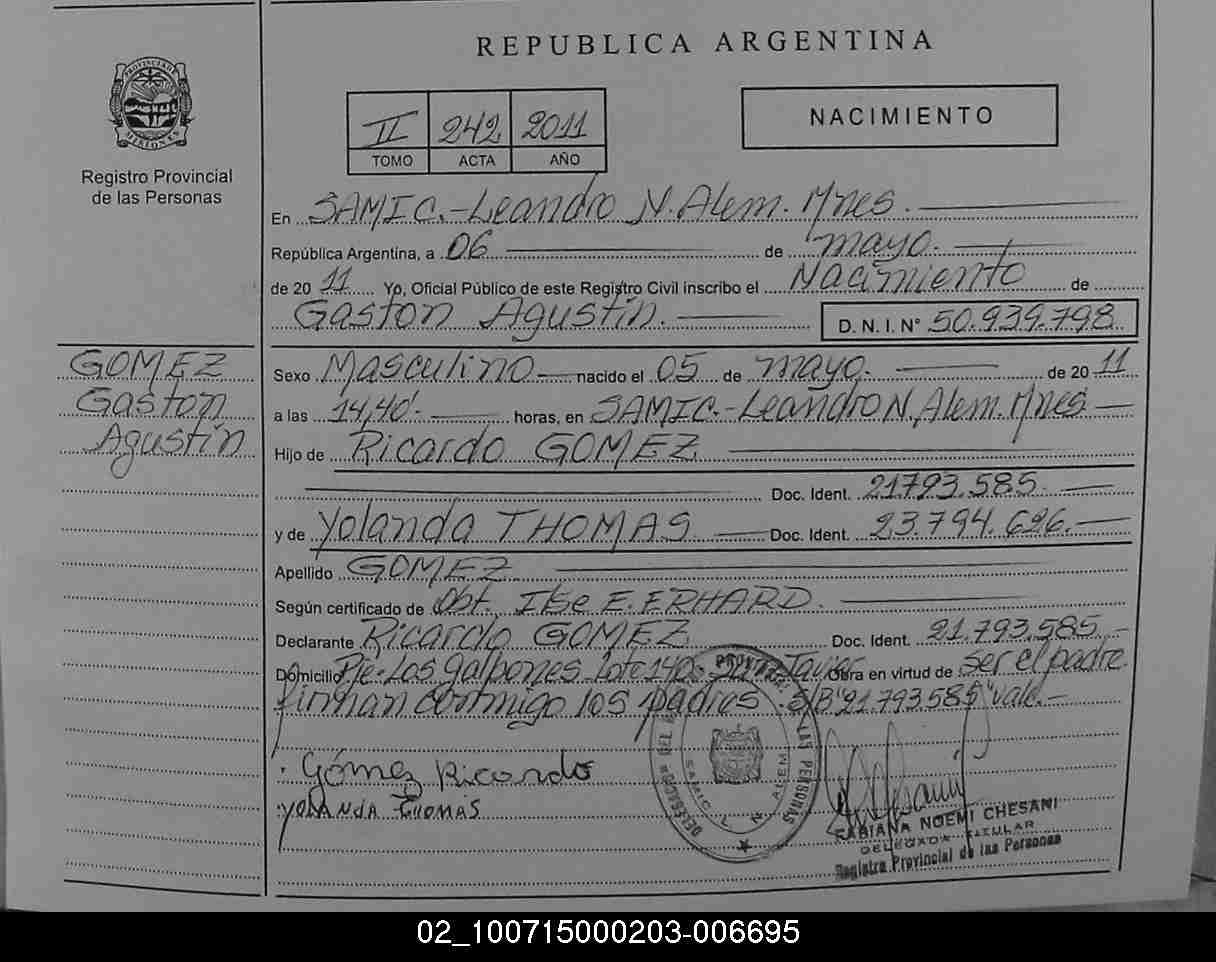 REPUBLICA ARGENTINA
PROVINCIA DE MISIONES
Registro Provincial
de las Personas
II 242 2011
TOMO ACTA AÑO
NACIMIENTO
En SAMIC.-Leandro N. Alem. Mnes.
República Argentina, a 06 de mayo.
de 20 11 Yo, Oficial Público de este Registro Civil inscribo el Nacimiento de
Gaston Agustín. D. N. I. N° 50.939.798
GOMEZ
Gaston
Agustín
Sexo Masculino nacido el 05 de mayo. de 20 11
a las 14,40'- horas, en SAMIC.-Leandro N. Alem. Mnes
Hijo de Ricardo GOMEZ
Doc. Ident. 21793.585
y de Yolanda THOMAS Doc. Ident. 23.794.626.
Apellido GOMEZ
Según certificado de Obt. Ilse E. ERHARD.
Declarante Ricardo GOMEZ Doc. Ident. 21.793.585.-
Domicilio Pje-Los galpones-Lote 140 Javier Obra en virtud de ser el padre
firman conmigo los padres. S/B "21.793.585" vale.-
Gómez Ricardo
YOLANDA THOMAS
DELEGACION DEL LAS PERSONAS
SAMIC L. N. ALEM
FABIANA NOEMI CHESANI
DELEGADA TITULAR
Registro Provincial de las Personas
02_100715000203-006695